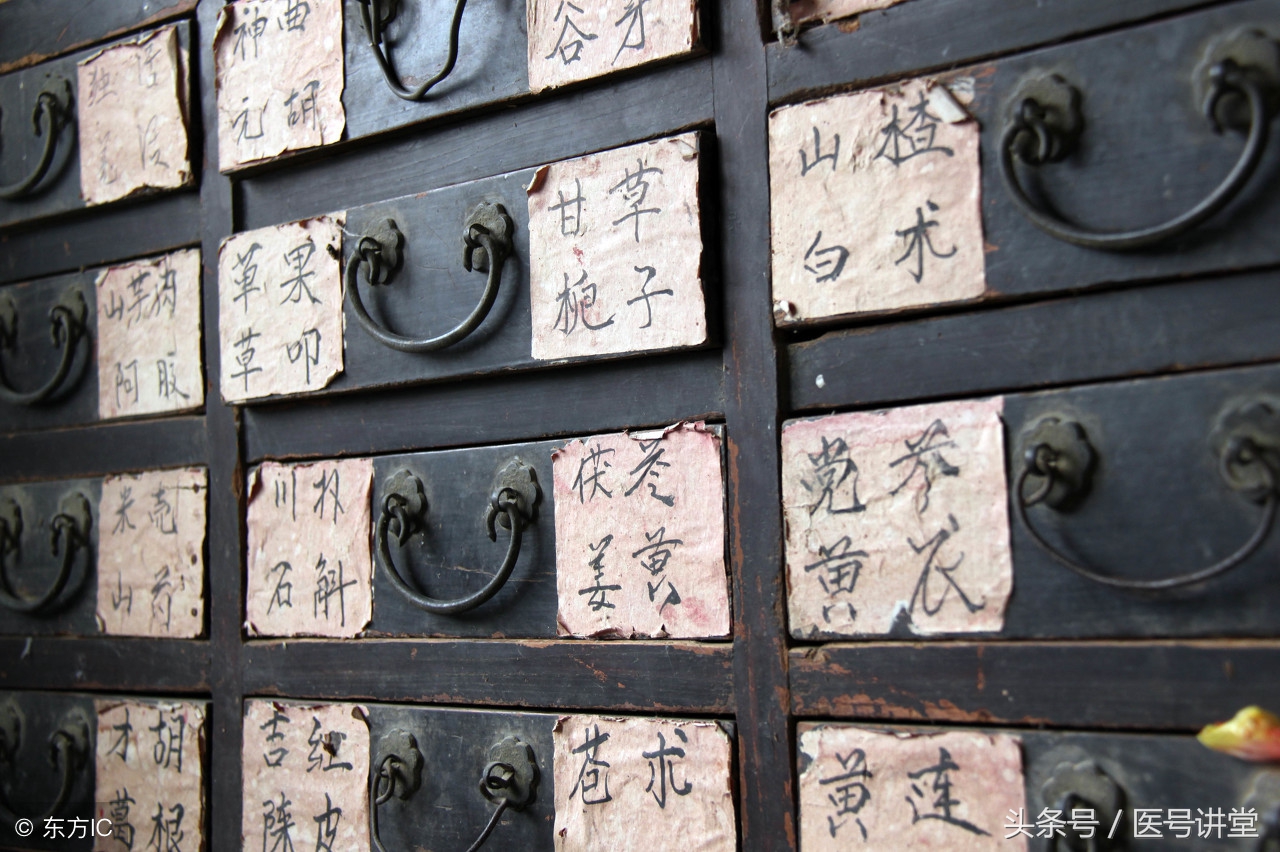 神曲
元胡
谷牙
山楂
白术
草果
草叩
甘草
枙子
山萸肉
阿胶
川朴
石斛
茯苓
姜黄
党参
黄芪
米壳
山药
胡
根
吉红
陈皮
苍术
黄连
© 东方IC
头条号 / 医号讲堂